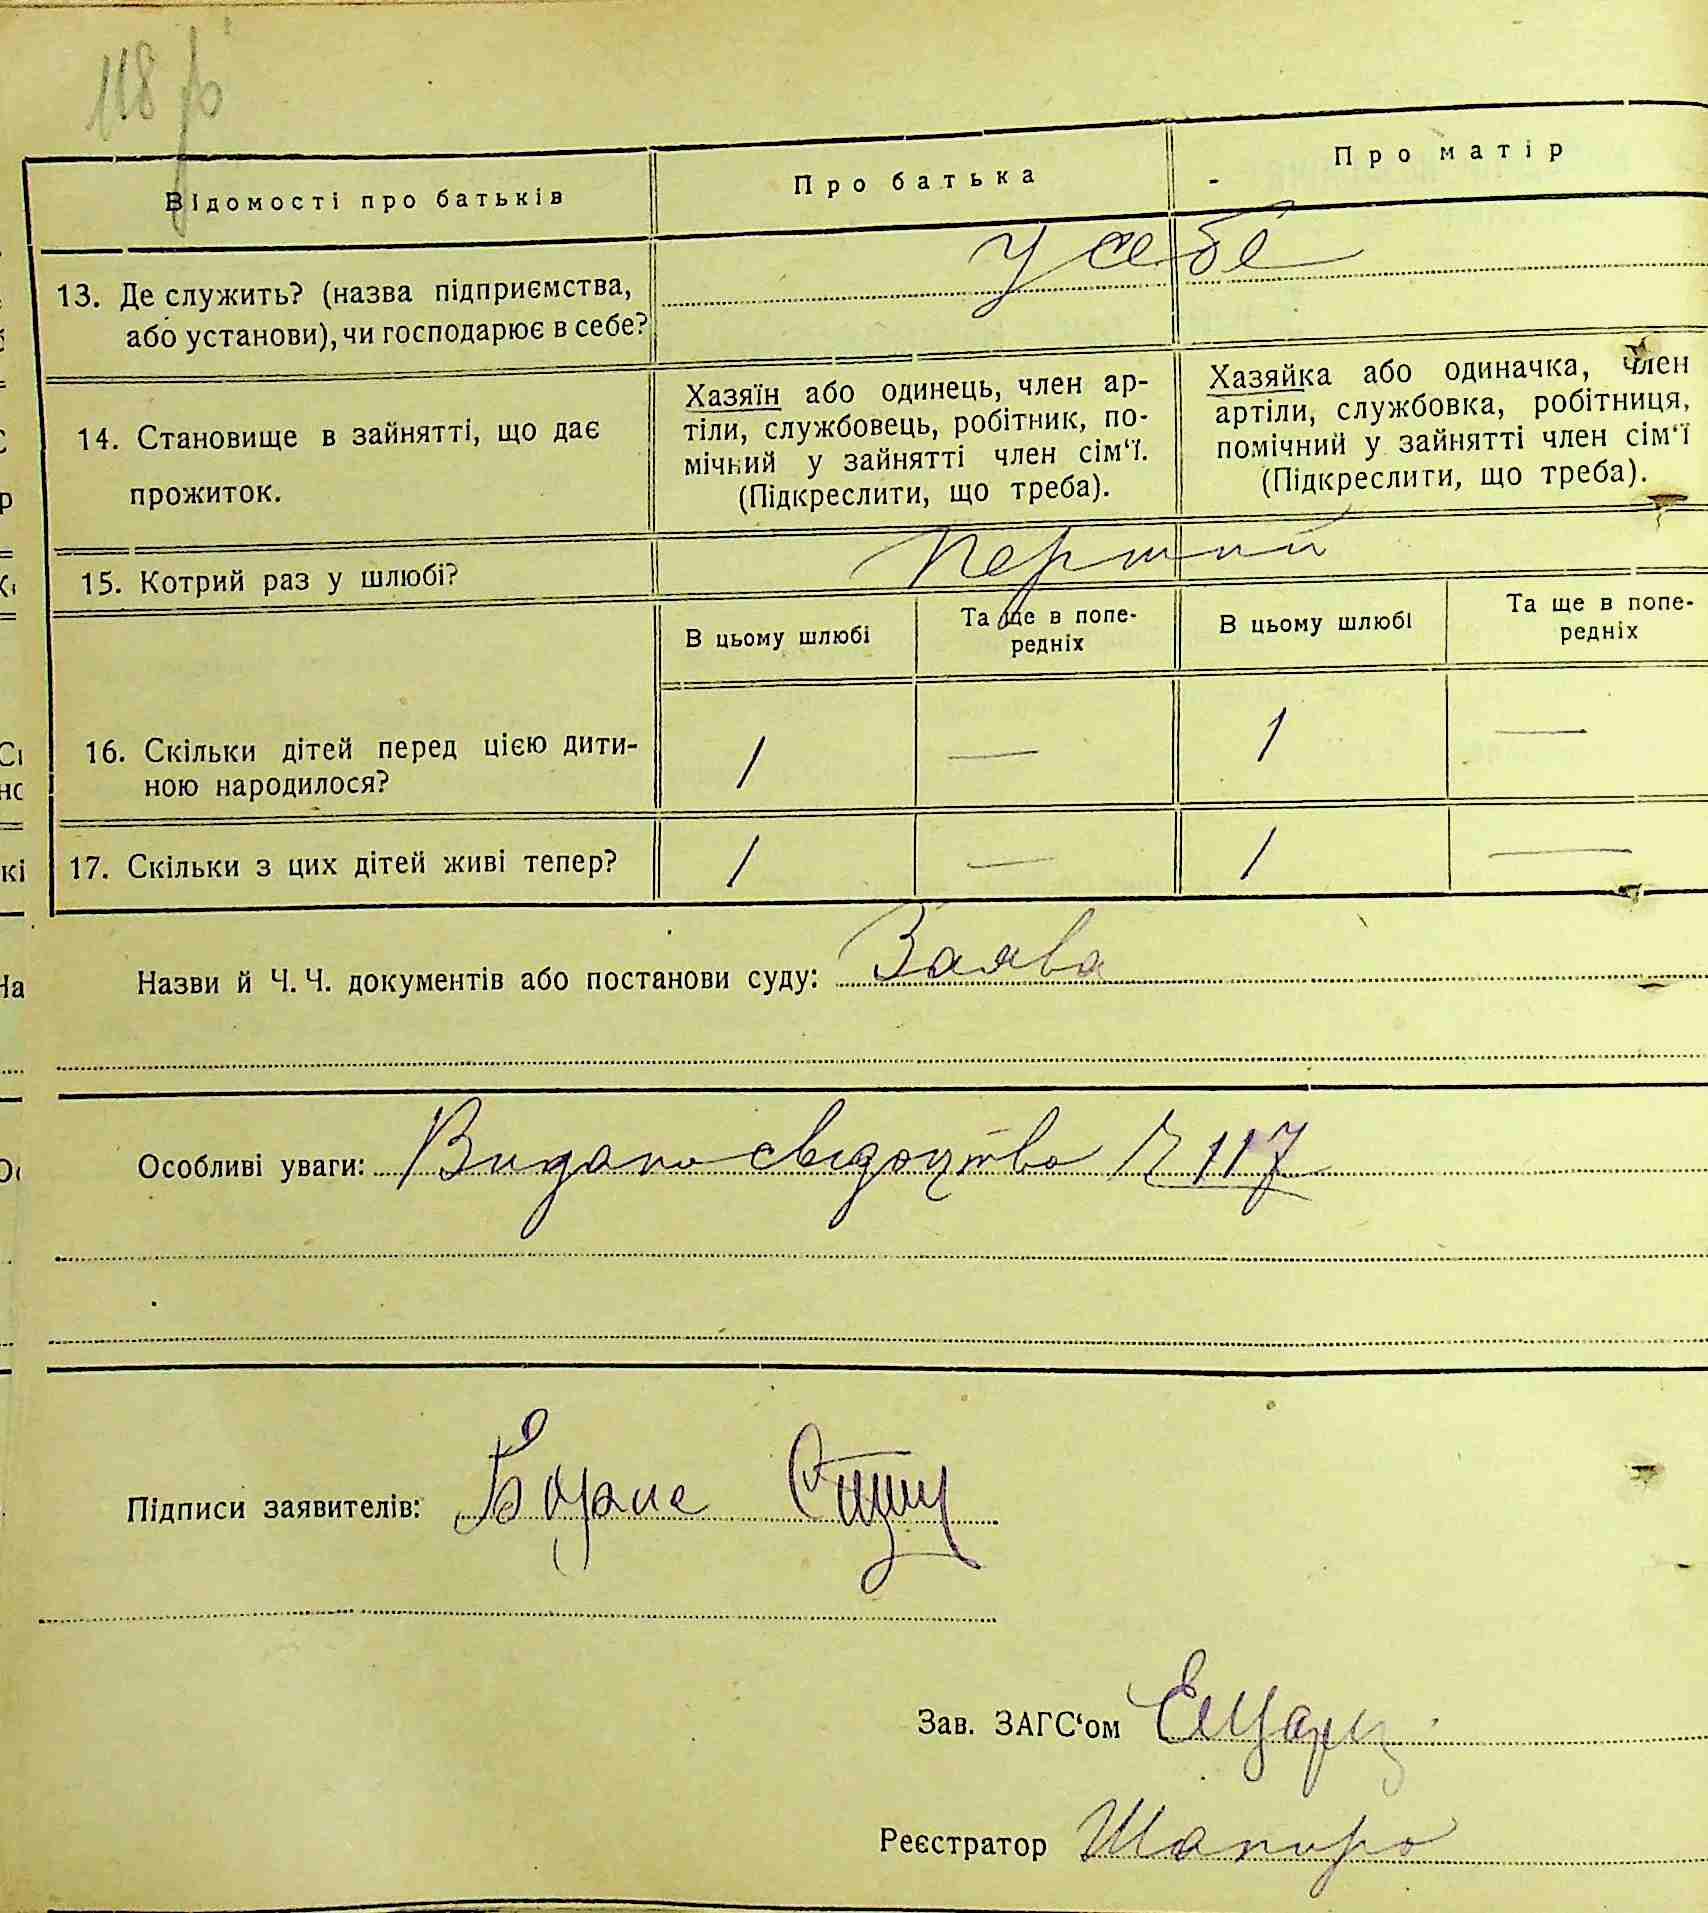 118
Відомості про батьків
Про батька
Про матір
13. Де служить? (назва підприємства,
або установи), чи господарює в себе?
У себе
14. Становище в зайнятті, що дає
прожиток.
Хазяїн або одинець, член ар-
тіли, службовець, робітник, по-
мічний у зайнятті член сім‘ї.
(Підкреслити, що треба).
Хазяйка або одиначка, член
артіли, службовка, робітниця,
помічний у зайнятті член сім‘ї
(Підкреслити, що треба).
15. Котрий раз у шлюбі?
Перший
В цьому шлюбі
Та ще в попе-
редніх
В цьому шлюбі
Та ще в попе-
редніх
16. Скільки дітей перед цією дити-
ною народилося?
1 — 1 —
17. Скільки з цих дітей живі тепер? 1 — 1 —
Назви й Ч. Ч. документів або постанови суду: Заява
Особливі уваги: Видано свідоцтво Ч 117
Підписи заявителів:
Зав. ЗАГС‘ом
Реєстратор Шапиро